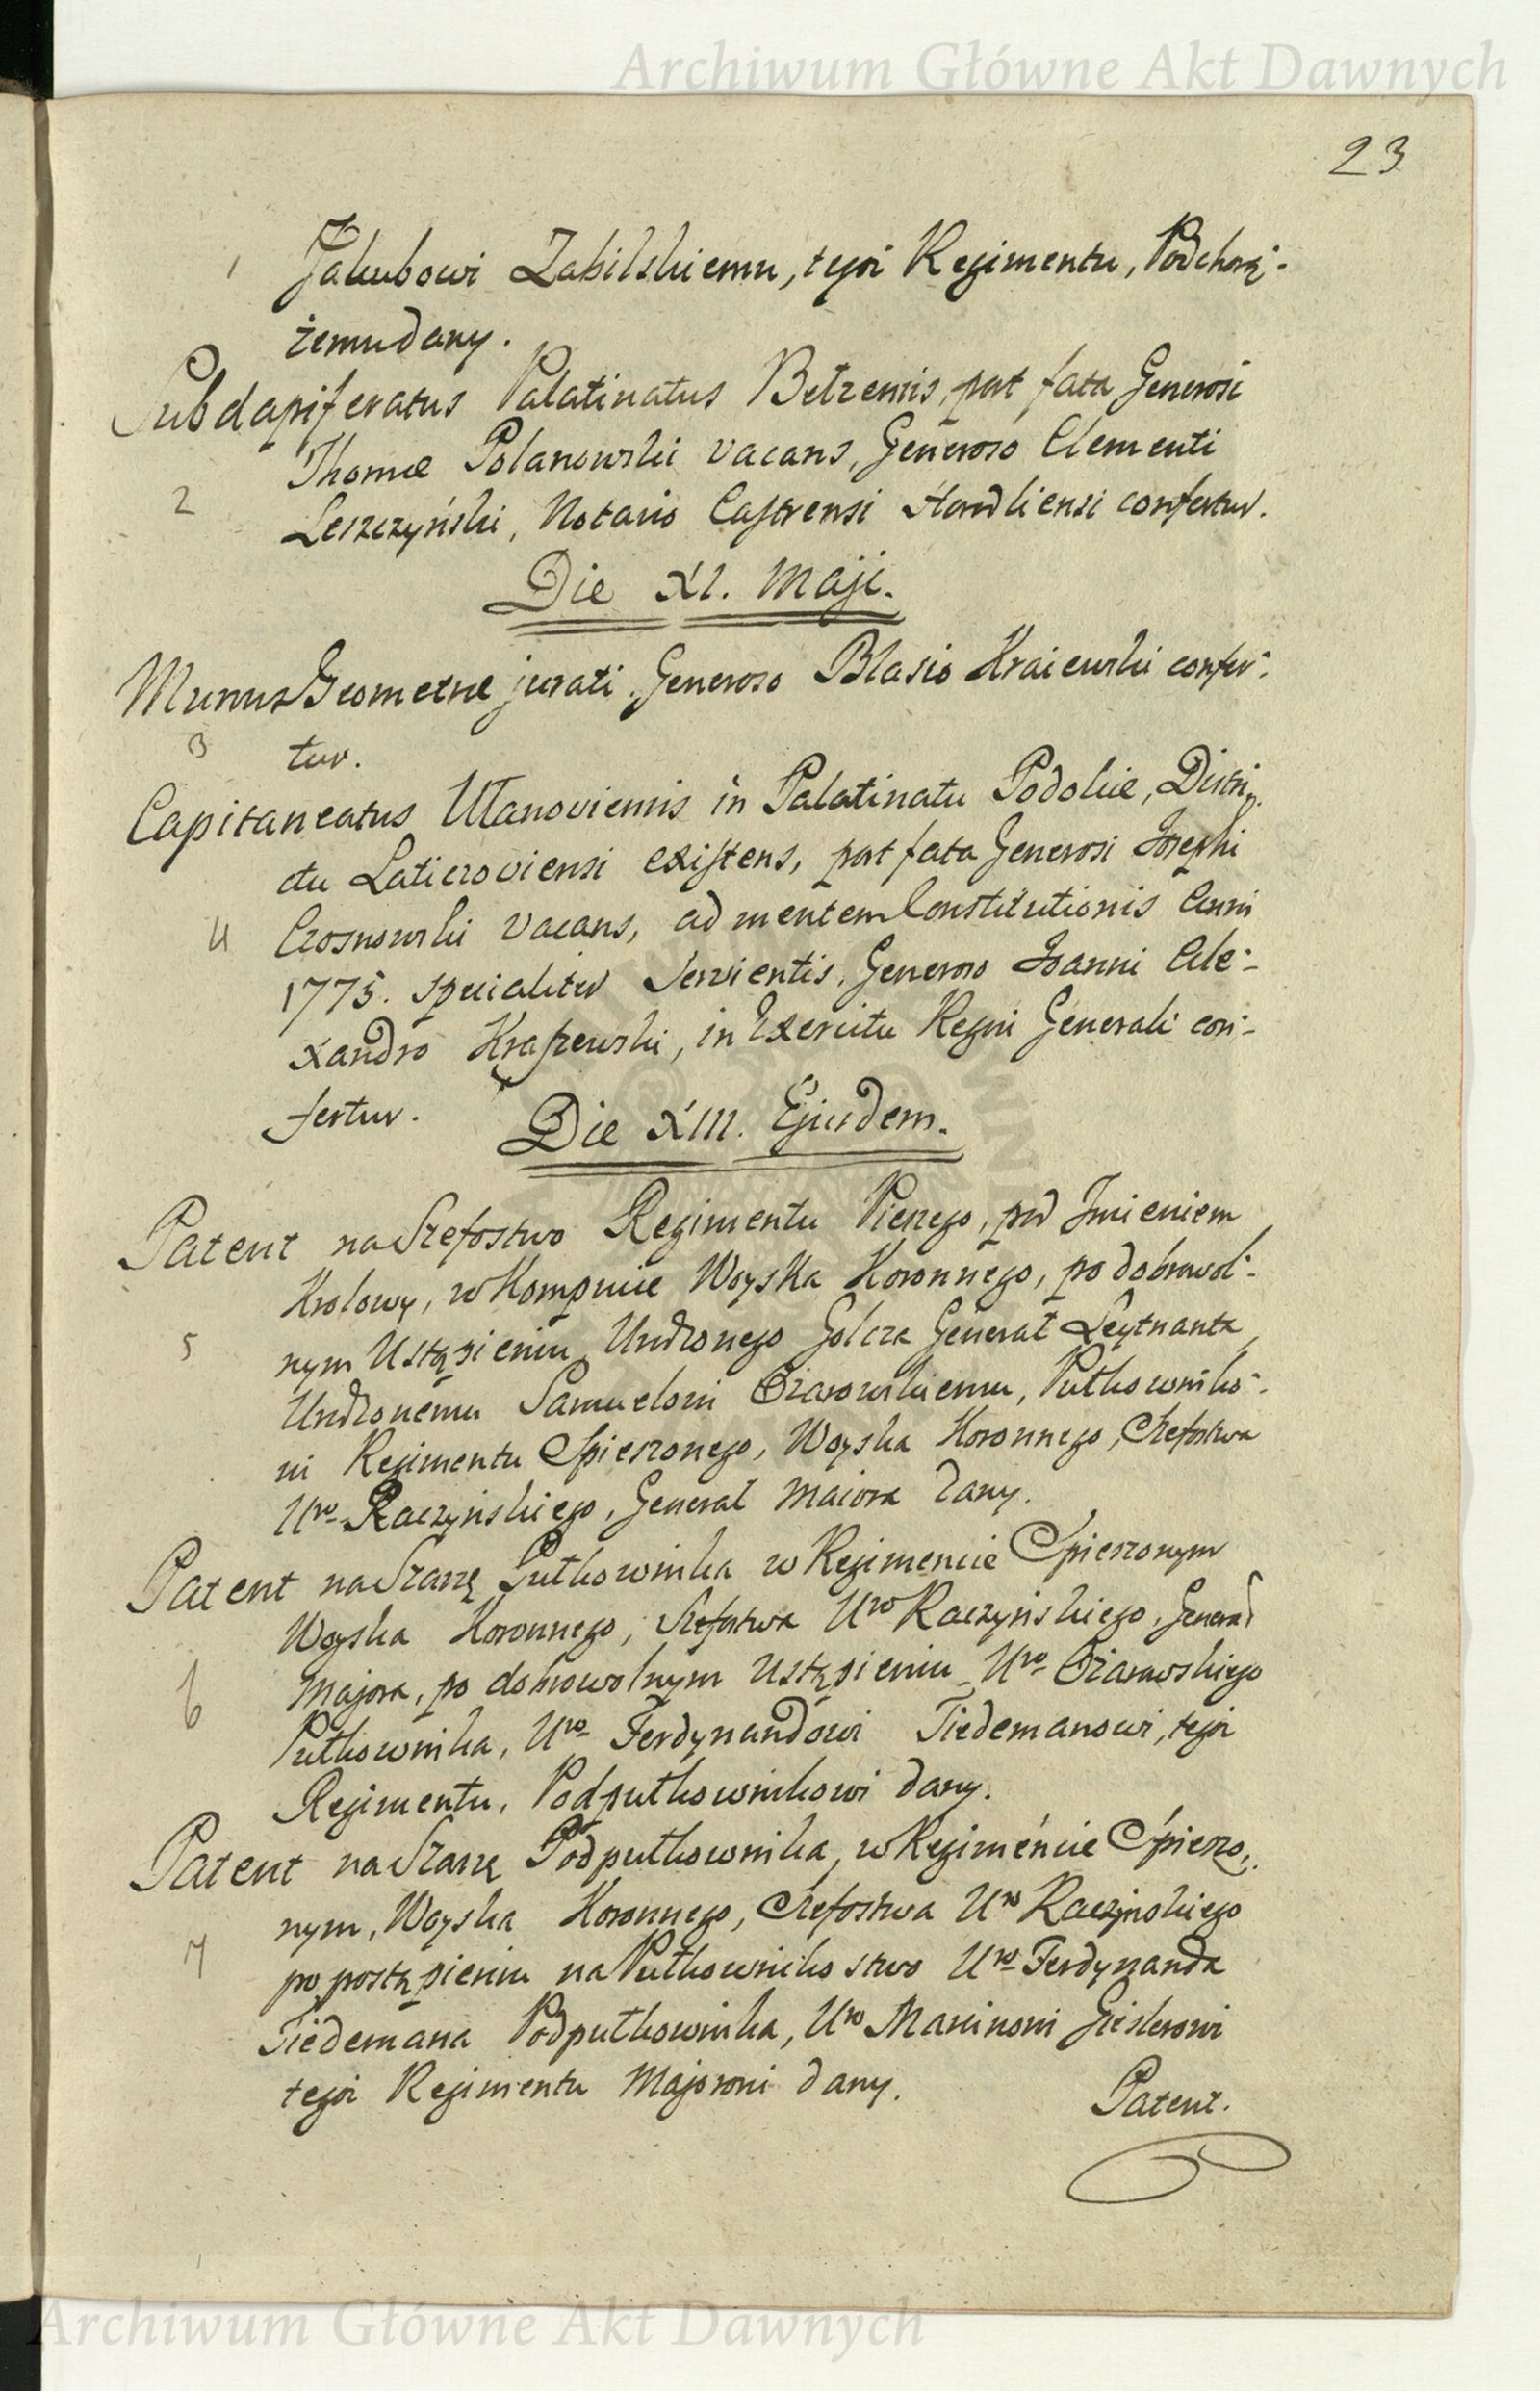 Archiwum Główne Akt Dawnych
23
1 Jakubowi Zabilskiemu, tegoż Regimentu, Podchorą-
żemu dany.
Subdapiferatus Palatinatus Belzensis, post fata Generosi
Thomæ Polanowski vacans, Generoso Clementi
2 Leszczyński, Notario Castrensi Horodliensi confertur.
Die XI. Maji.
Munus Geometræ jurati Generoso Blasio Kraiewski confer-
3 tur.
Capitaneatus Ułanoviensis in Palatinatu Podoliæ, Distri-
ctu Laticzoviensi existens, post fata Generosi Josephi
4 Czosnowski vacans, ad mentem Constitutionis Anni
1775. specialiter servientis, Generoso Joanni Ale-
xandro Kraszewski, in Exercitu Regni Generali con-
fertur.
Die XIII. Ejusdem.
Patent na Szefostwo Regimentu Pieszego, pod Imieniem
Krolowy, w Kompucie Woyska Koronnego, po dobrowol-
5 nym Ustąpieniu Urodzonego Golcza Generał Leytnanta
Urodzonemu Samuelowi Ożarowskiemu, Pułkowniko-
wi Regimentu Spieszonego, Woyska Koronnego, Szefostwa
Uro Raczyńskiego, Generał Maiora dany.
Patent na Szarżę Pułkownika w Regimencie Spieszonym
Woyska Koronnego, Szefostwa Uro Raczyńskiego, Generał
6 Majora, po dobrowolnym Ustąpieniu Uro Ożarowskiego
Pułkownika, Uro Ferdynandowi Tiedemanowi, tegoż
Regimentu, Podpułkownikowi dany.
Patent na Szarżę Podpułkownika, w Regimencie Spieszo-
nym, Woyska Koronnego, Szefostwa Uro Raczyńskiego
7 po postąpieniu na Pułkownikostwo Uro Ferdynanda
Tiedemana Podpułkownika, Uro Gislerowi
tegoż Regimentu Majorowi dany.
Patent.
Archiwum Główne Akt Dawnych